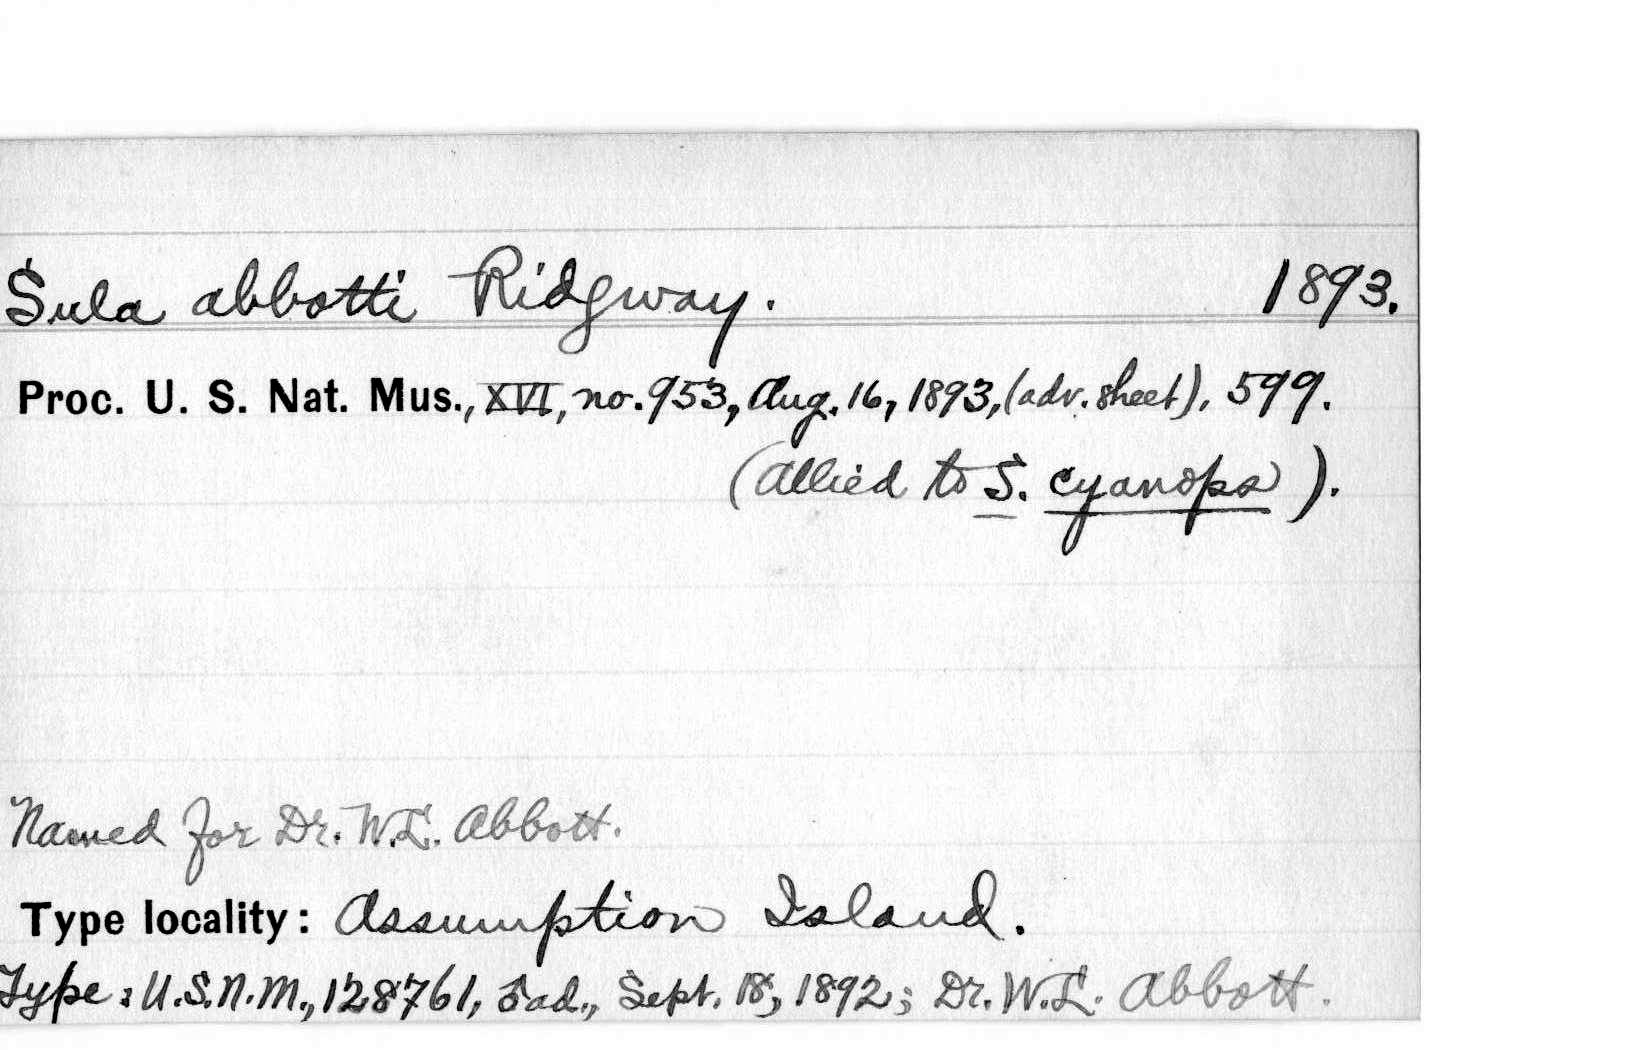 Sula abbotti Ridgway. 1893.
Proc. U. S. Nat. Mus., XVI, no. 953, Aug. 16, 1893, (adv. sheet), 599.
(Allied to S. cyanops).
Named for Dr. W.L. Abbott.
Type locality: Assumption Island.
Type: U.S.N.M., 128761, ad., Sept. 18, 1892; Dr. W.L. Abbott.